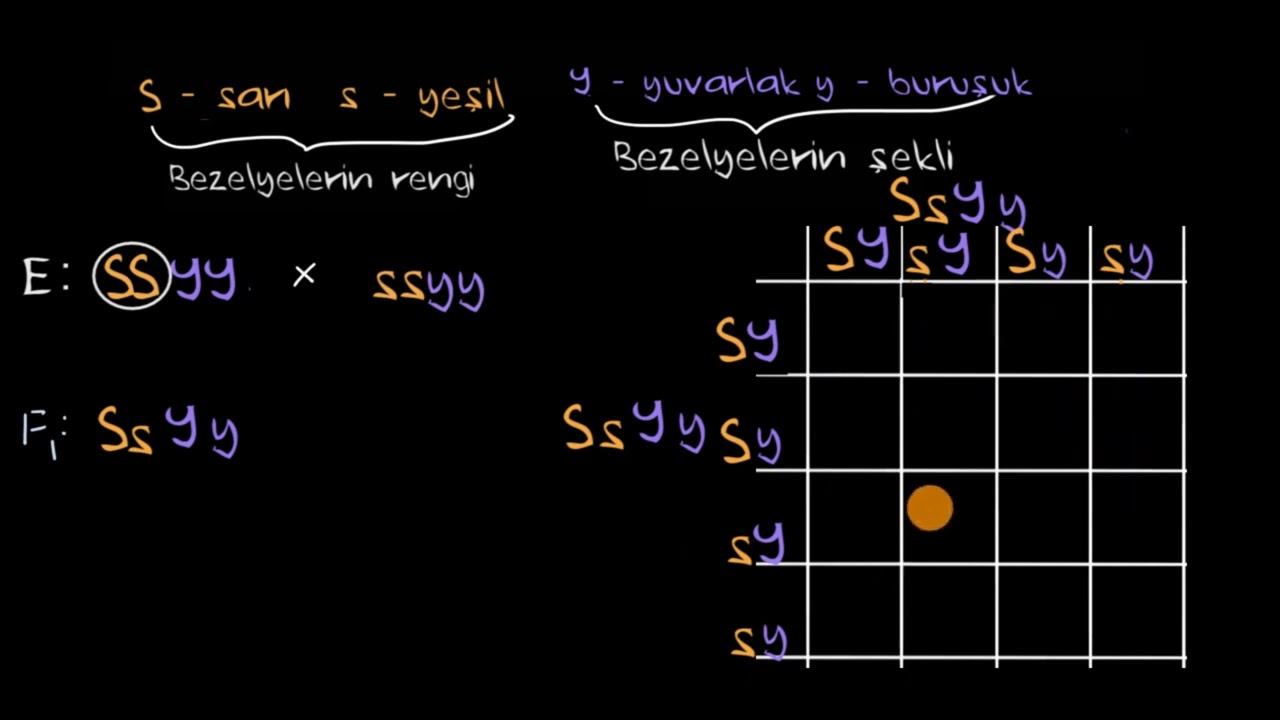 S - sarı s - yeşil Y - yuvarlak y - buruşuk
Bezelyelerin rengi Bezelyelerin şekli
SsYy
SY sY Sy sy
E: SSYY × ssyy
SY
F₁: SsYy SsYy Sy
sY
sy